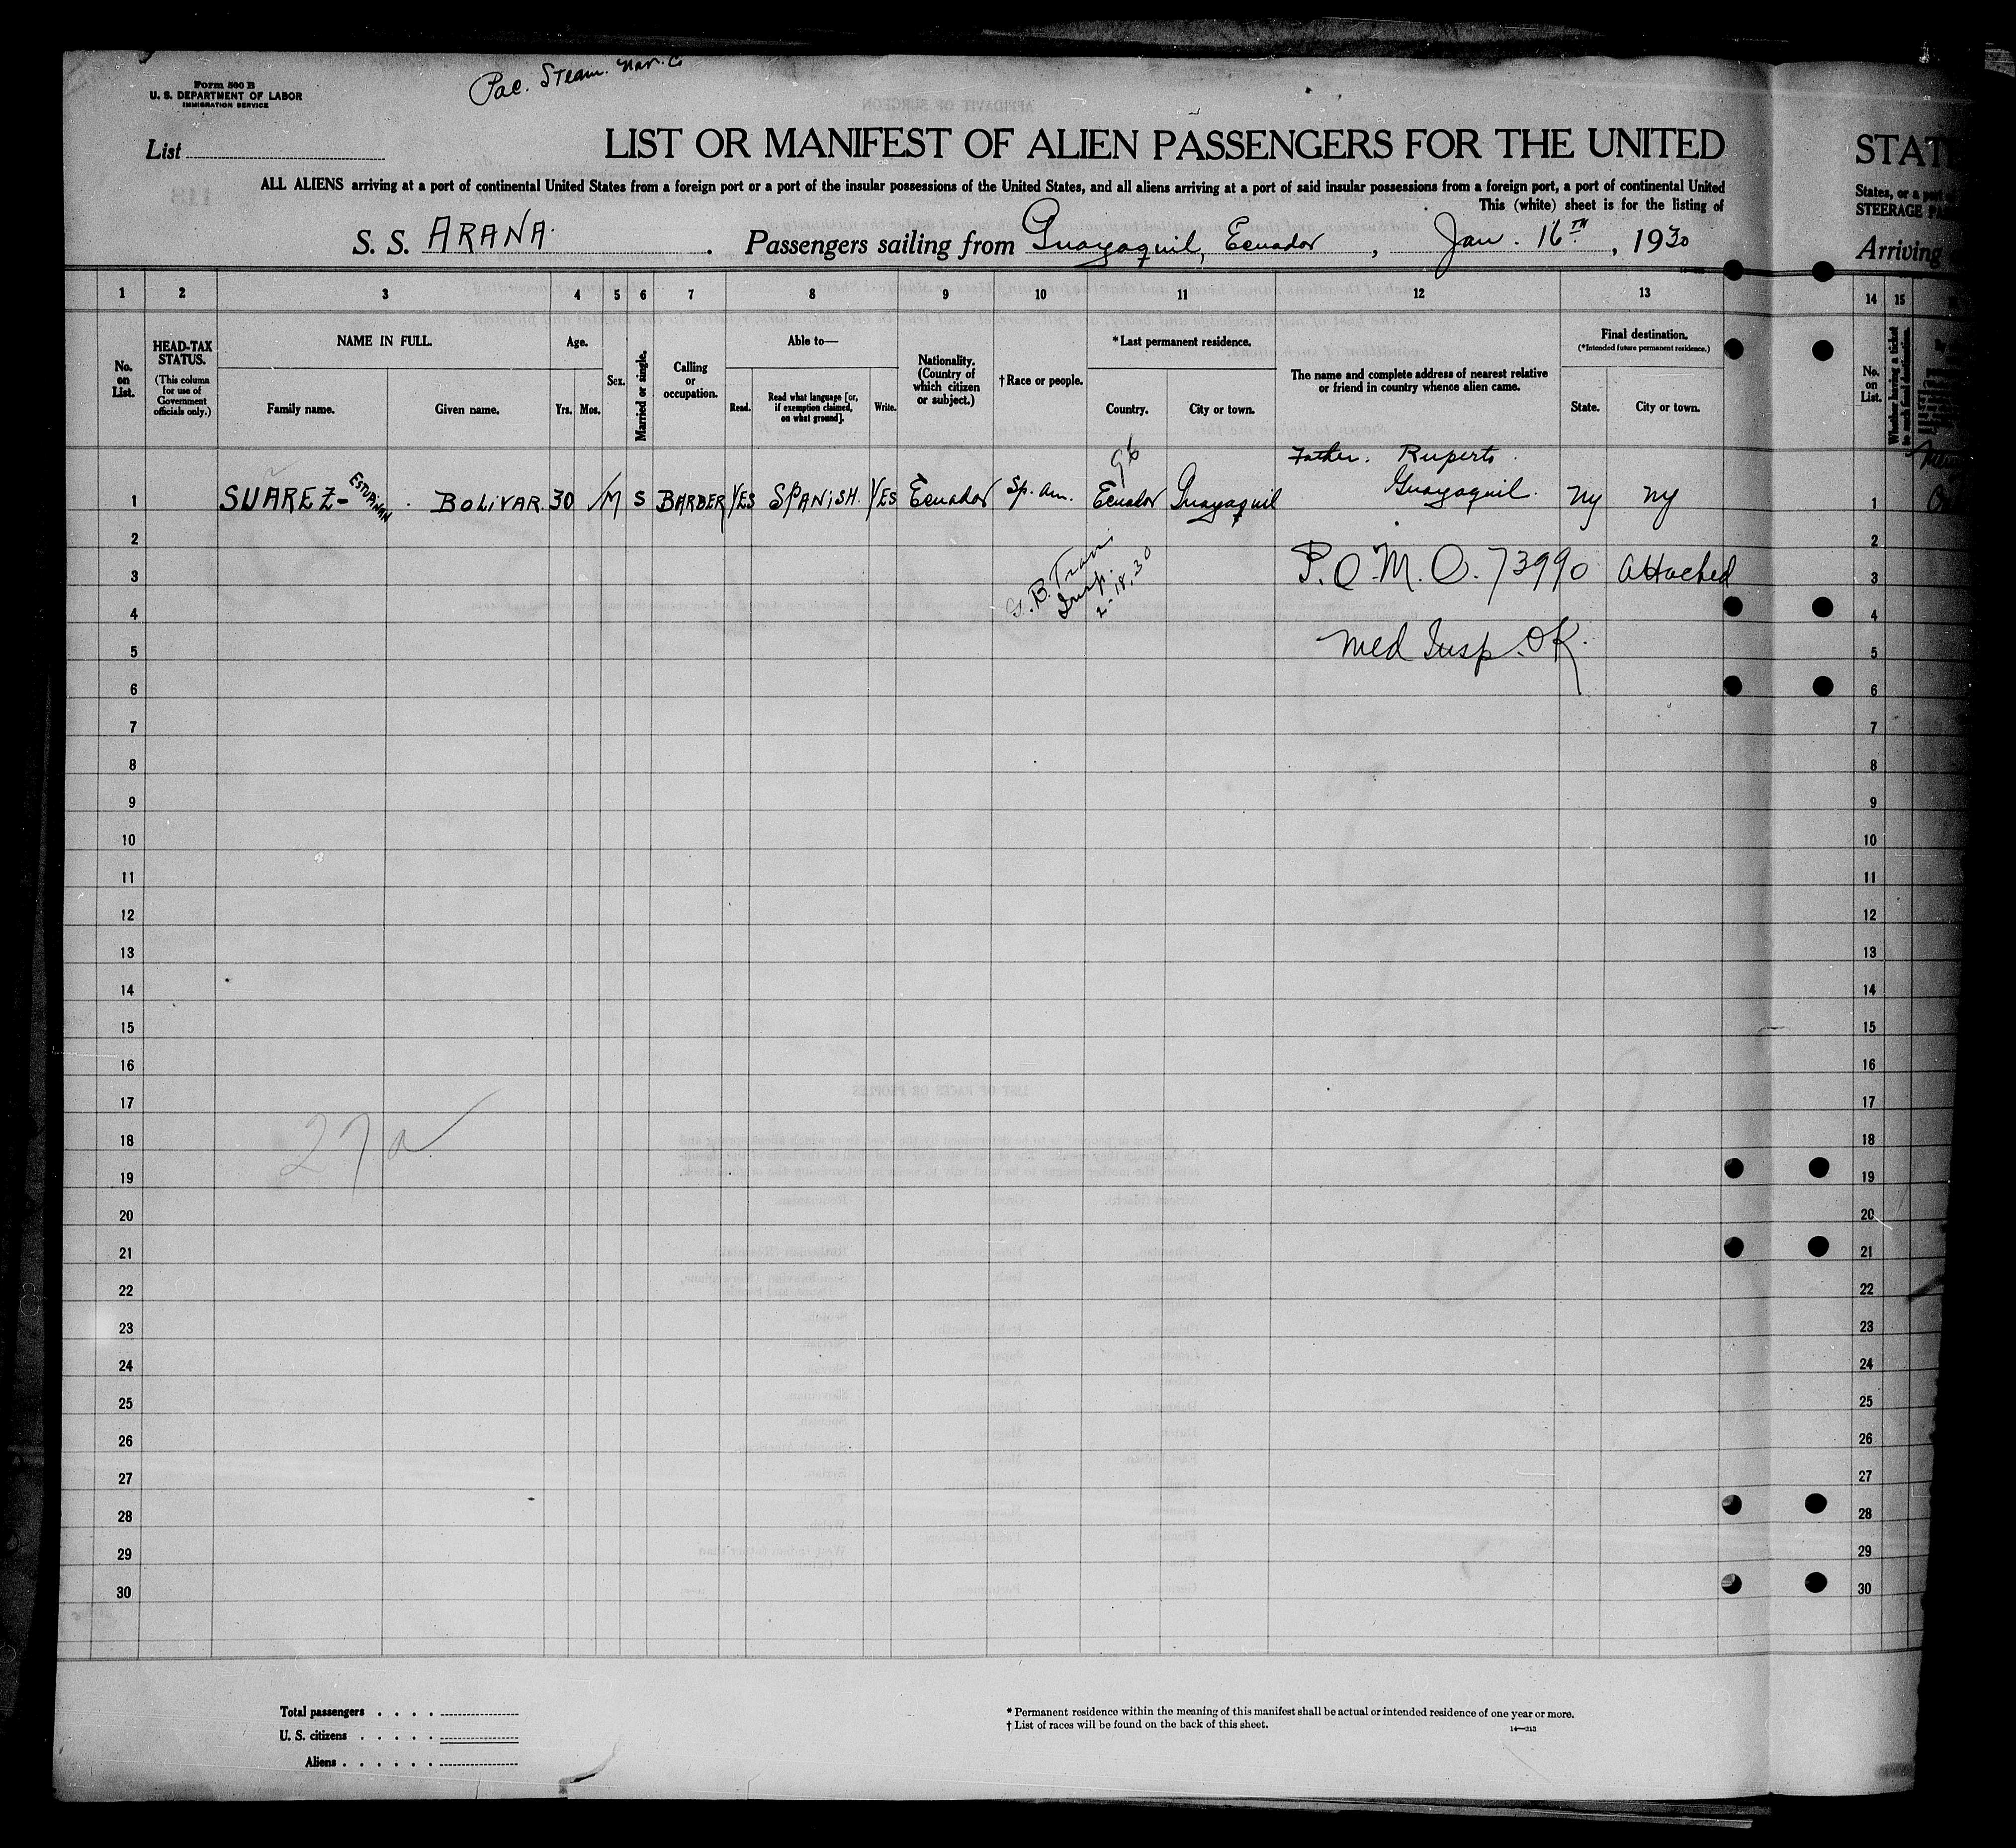 Pac. Steam. Nav. Co
Form 500 B
U. S. DEPARTMENT OF LABOR
IMMIGRATION SERVICE
List
LIST OR MANIFEST OF ALIEN PASSENGERS FOR THE UNITED
ALL ALIENS arriving at a port of continental United States from a foreign port or a port of the insular possessions of the United States, and all aliens arriving at a port of said insular possessions from a foreign port, a port of continental United
This (white) sheet is for the listing of
S. S. ARANA. Passengers sailing from Guayaquil, Ecuador, Jan. 16TH, 1930
STATE
States, or a port
STEERAGE
Arriving
1 2 3 4 5 6 7 8 9 10 11 12 13 14 15
No. on List.
HEAD-TAX STATUS.
(This column for use of Government officials only.)
NAME IN FULL.
Family name.
Given name.
Age.
Yrs. Mos.
Sex.
Married or single.
Calling or occupation.
Able to—
Read.
Read what language [or, if exemption claimed, on what ground].
Write.
Nationality. (Country of which citizen or subject.)
†Race or people.
*Last permanent residence.
Country.
City or town.
The name and complete address of nearest relative or friend in country whence alien came.
Final destination.
(*Intended future permanent residence.)
State.
City or town.
No. on List.
Whether having a ticket to such final destination.
1 SUAREZ-ESTUPINAN BOLIVAR. 30 M S BARBER YES SPANISH. YES Ecuador Sp. Am. Ecuador Guayaquil Father. Ruperto. Guayaquil. Ny Ny 1
2 2
3 P.O.M.O. 73990 Attached 3
Insp.
2-18,30
4 4
5 Med Insp. OK. 5
6 6
7 7
8 8
9 9
10 10
11 11
12 12
13 13
14 14
15 15
16 16
17 17
18 18
27a
19 19
20 20
21 21
22 22
23 23
24 24
25 25
26 26
27 27
28 28
29 29
30 30
Total passengers
U. S. citizens
Aliens
* Permanent residence within the meaning of this manifest shall be actual or intended residence of one year or more.
† List of races will be found on the back of this sheet.
14—213